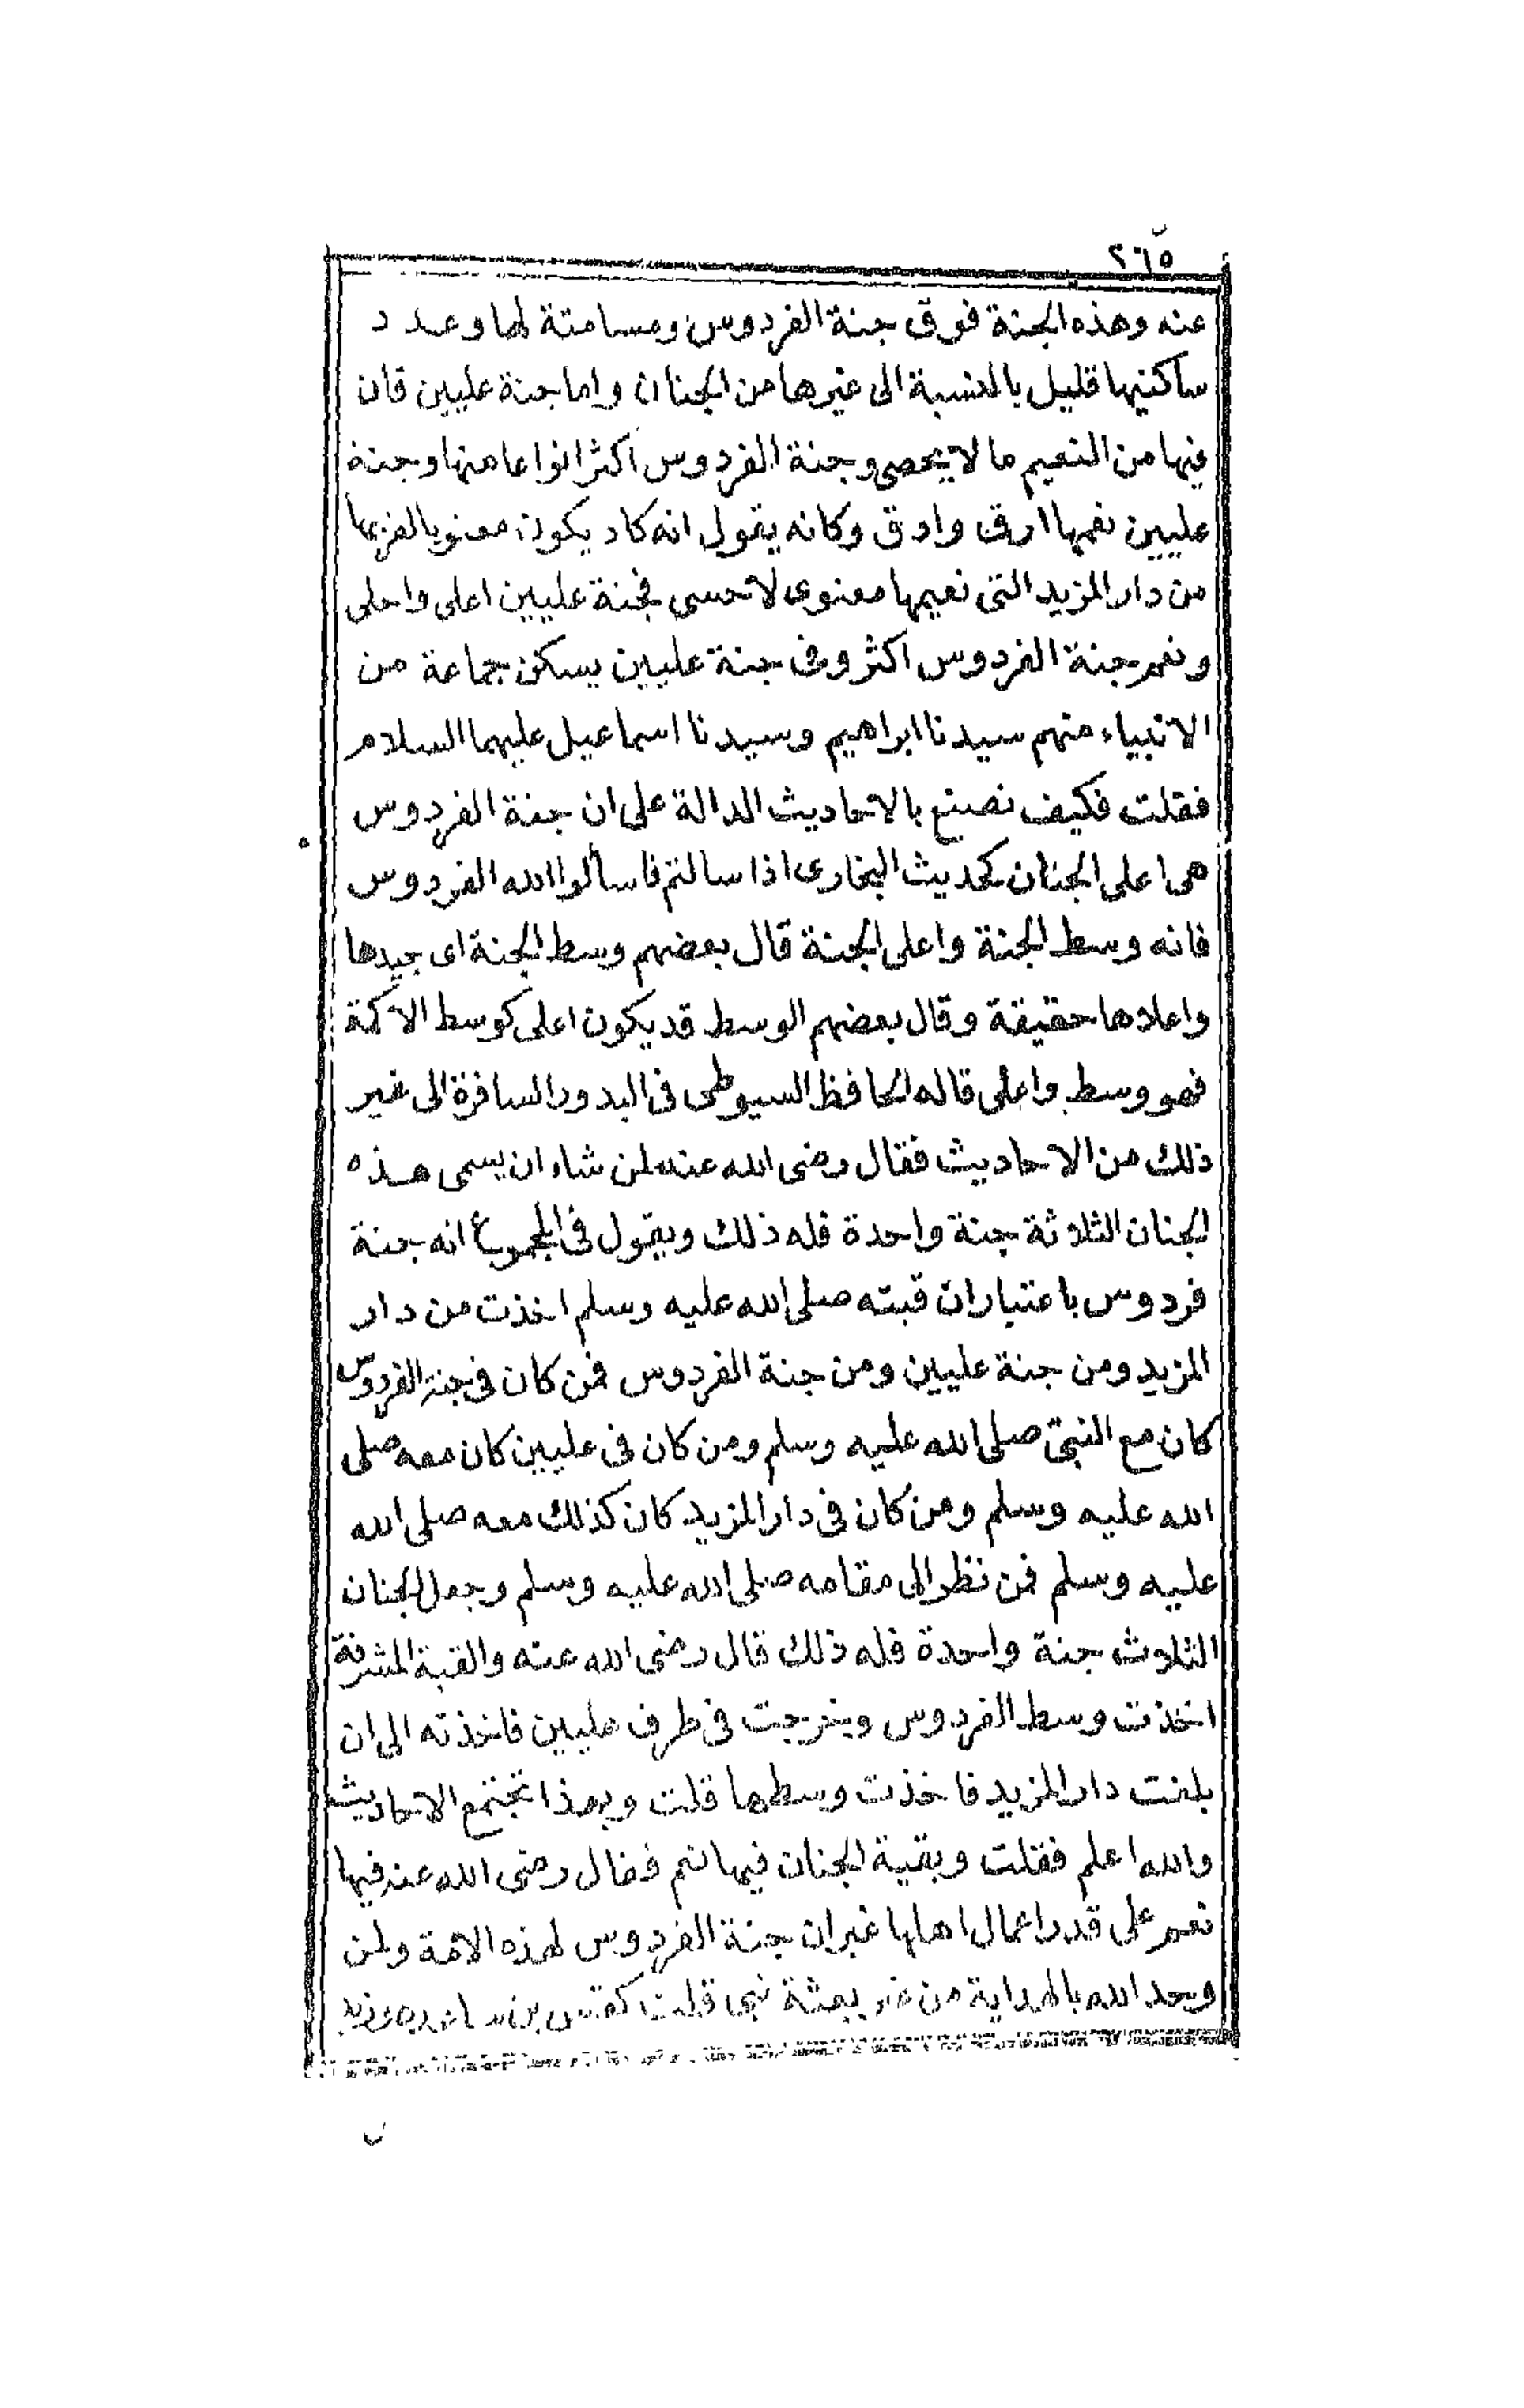 ٢٦٥
عنه وهذه الجنة فوق جنة الفردوس ومسامتة لها وعدد
ساكنيها قليل بالنسبة الى غيرها من الجنان واما جنة عليين فان
فيها من النعيم ما لا يحصى وجنة الفردوس اكثر انواعا منها وجنة
عليين نعمها ارق وادق وكانه يقول انه كاد يكون معنويا لقربها
من دار المزيد التى نعيمها معنوى لا حسى فجنة عليين اعلى واحلى
ونعم جنة الفردوس اكثر وفى جنة عليين يسكن جماعة من
الانبياء منهم سيدنا ابراهيم وسيدنا اسماعيل عليهما السلام
فقلت فكيف نصنع بالاحاديث الدالة على ان جنة الفردوس
هى اعلى الجنان كحديث البخارى اذا سالتم فاسألوا الله الفردوس
فانه وسط الجنة واعلى الجنة قال بعضهم وسط الجنة اى جيدها
واعلاها حقيقة وقال بعضهم الوسط قد يكون اعلى كوسط الاكمة
فهو وسط واعلى قاله الحافظ السيوطى فى البدور السافرة الى غير
ذلك من الاحاديث فقال رضى الله عنه لمن شاء ان يسمى هذه
الجنان الثلاثة جنة واحدة فله ذلك ويقول فى المجموع انه جنة
فردوس باعتبار ان قبته صلى الله عليه وسلم اخذت من دار
المزيد ومن جنة عليين ومن جنة الفردوس فمن كان فى جنة الفردوس
كان مع النبى صلى الله عليه وسلم ومن كان فى عليين كان معه صلى
الله عليه وسلم ومن كان فى دار المزيد كان كذلك معه صلى الله
عليه وسلم فمن نظر الى مقامه صلى الله عليه وسلم وجعل الجنان
الثلاث جنة واحدة فله ذلك قال رضى الله عنه والقبة المشرفة
اخذت وسط الفردوس وخرجت فى طرف عليين فاخذته الى ان
بلغت دار المزيد فاخذت وسطها قلت وبهذا تجتمع الاحاديث
والله اعلم فقلت وبقية الجنان فيها نعم فقال رضى الله عنه فيها
نعم على قدر اعمال اهلها غير ان جنة الفردوس لهذه الامة ولمن
وحد الله بالهداية من غير بعثة نبى قلت كقس بن ساعدة وزيد